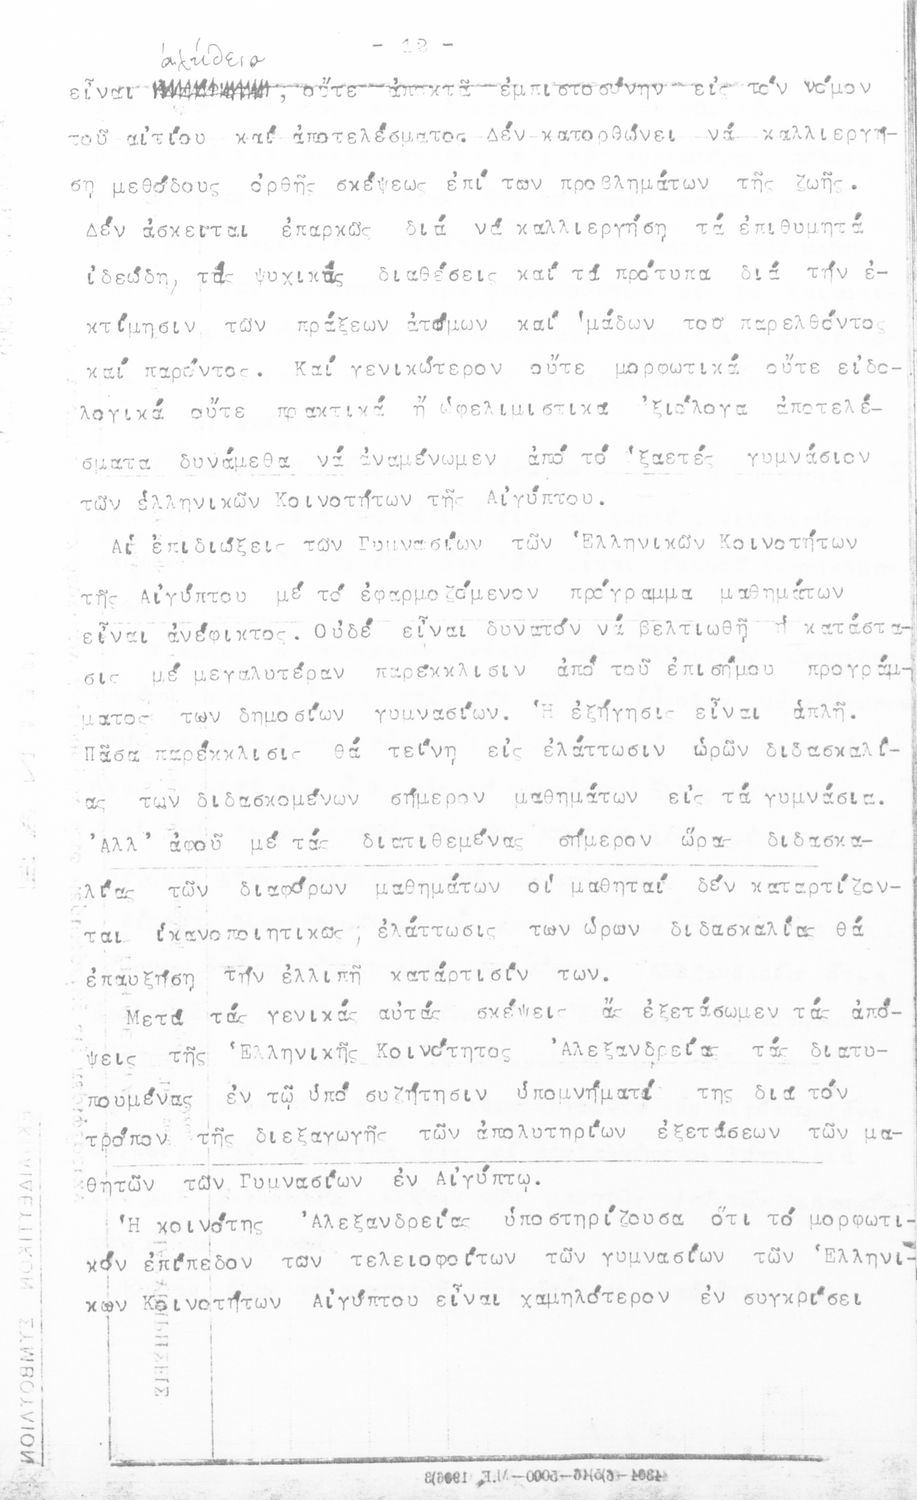 - 12 -
ἀλήθεια
εἶναι , οὔτε ἀποκτᾶ ἐμπιστοσύνην εἰς τόν νόμον
τοῦ αἰτίου καί ἀποτελέσματος. Δέν κατορθώνει νά καλλιεργή-
ση μεθόδους ὀρθῆς σκέψεως ἐπί των προβλημάτων τῆς ζωῆς.
Δέν ἀσκεῖται ἐπαρκῶς διά νά καλλιεργήση τά ἐπιθυμητά
ἰδεώδη, τάς ψυχικάς διαθέσεις καί τά πρότυπα διά τήν ἐ-
κτίμησιν τῶν πράξεων ἀτόμων καί ὁμάδων τοῦ παρελθόντος
καί παρόντος. Καί γενικώτερον οὔτε μορφωτικά οὔτε εἰδο-
λογικά οὔτε πρακτικά ἤ ὠφελιμιστικά ἀξιόλογα ἀποτελέ-
σματα δυνάμεθα νά ἀναμένωμεν ἀπό τό ἑξαετές γυμνάσιον
τῶν ἑλληνικῶν Κοινοτήτων τῆς Αἰγύπτου.
Αἱ ἐπιδιώξεις τῶν Γυμνασίων τῶν Ἑλληνικῶν Κοινοτήτων
τῆς Αἰγύπτου μέ τό ἐφαρμοζόμενον πρόγραμμα μαθημάτων
εἶναι ἀνέφικτος. Οὐδέ εἶναι δυνατόν νά βελτιωθῆ ἡ κατάστα-
σις μέ μεγαλυτέραν παρέκκλισιν ἀπό τοῦ ἐπισήμου προγράμ-
ματος των δημοσίων γυμνασίων. Ἡ ἐξήγησις εἶναι ἁπλῆ.
Πᾶσα παρέκκλισις θά τείνη εἰς ἐλάττωσιν ὡρῶν διδασκαλί-
ας των διδασκομένων σήμερον μαθημάτων εἰς τά γυμνάσια.
Ἀλλ' ἀφοῦ μέ τάς διατιθεμένας σήμερον ὥρας διδασκα-
λίας τῶν διαφόρων μαθημάτων οἱ μαθηταί δέν καταρτίζον-
ται ἱκανοποιητικῶς, ἐλάττωσις των ὡρων διδασκαλίας θά
ἐπαυξήση τήν ἐλλιπῆ κατάρτισίν των.
Μετά τάς γενικάς αὐτάς σκέψεις ἄς ἐξετάσωμεν τάς ἀπό-
ψεις τῆς Ἑλληνικῆς Κοινότητος Ἀλεξανδρείας τάς διατυ-
πουμένας ἐν τῷ ὑπό συζήτησιν ὑπομνήματί της διά τόν
τρόπον τῆς διεξαγωγῆς τῶν ἀπολυτηρίων ἐξετάσεων τῶν μα-
θητῶν τῶν Γυμνασίων ἐν Αἰγύπτῳ.
Ἡ κοινότης Ἀλεξανδρείας ὑποστηρίζουσα ὅτι τό μορφωτι-
κόν ἐπίπεδον των τελειοφοίτων τῶν γυμνασίων τῶν Ἑλληνι-
κων Κοινοτήτων Αἰγύπτου εἶναι χαμηλότερον ἐν συγκρίσει
ΣΥΜΒΟΥΛΙΟΝ